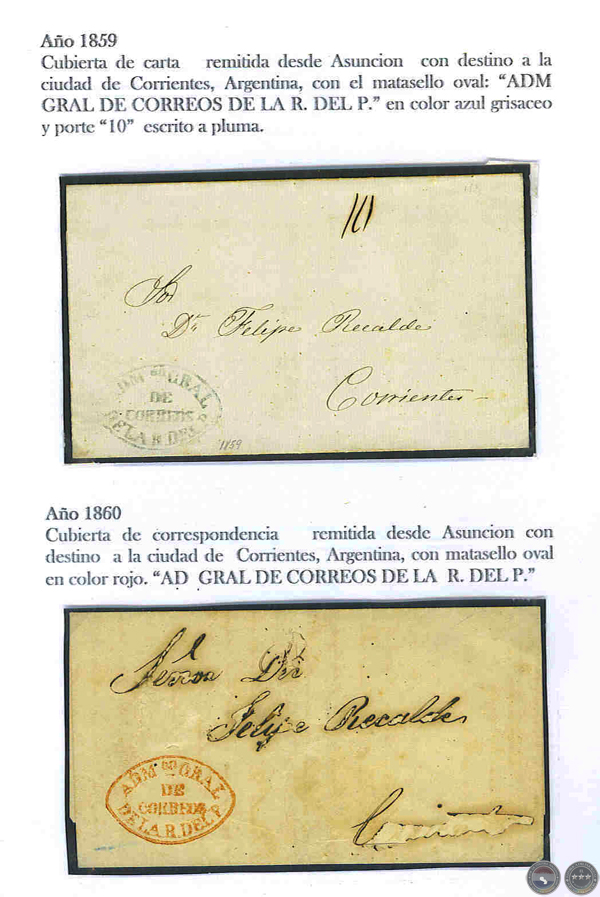 Año 1859
Cubierta de carta remitida desde Asuncion con destino a la
ciudad de Corrientes, Argentina, con el matasello oval: “ADM
GRAL DE CORREOS DE LA R. DEL P.” en color azul grisaceo
y porte “10” escrito a pluma.
10
Sor
Dn Felipe Recalde
Corrientes
ADM on GRAL
DE
CORREOS
DE LA R. DEL P.
1859
Año 1860
Cubierta de correspondencia remitida desde Asuncion con
destino a la ciudad de Corrientes, Argentina, con matasello oval
en color rojo. “AD GRAL DE CORREOS DE LA R. DEL P.”
Felipe Recalde
ADM on GRAL
DE
CORREOS
DE LA R. DEL P.